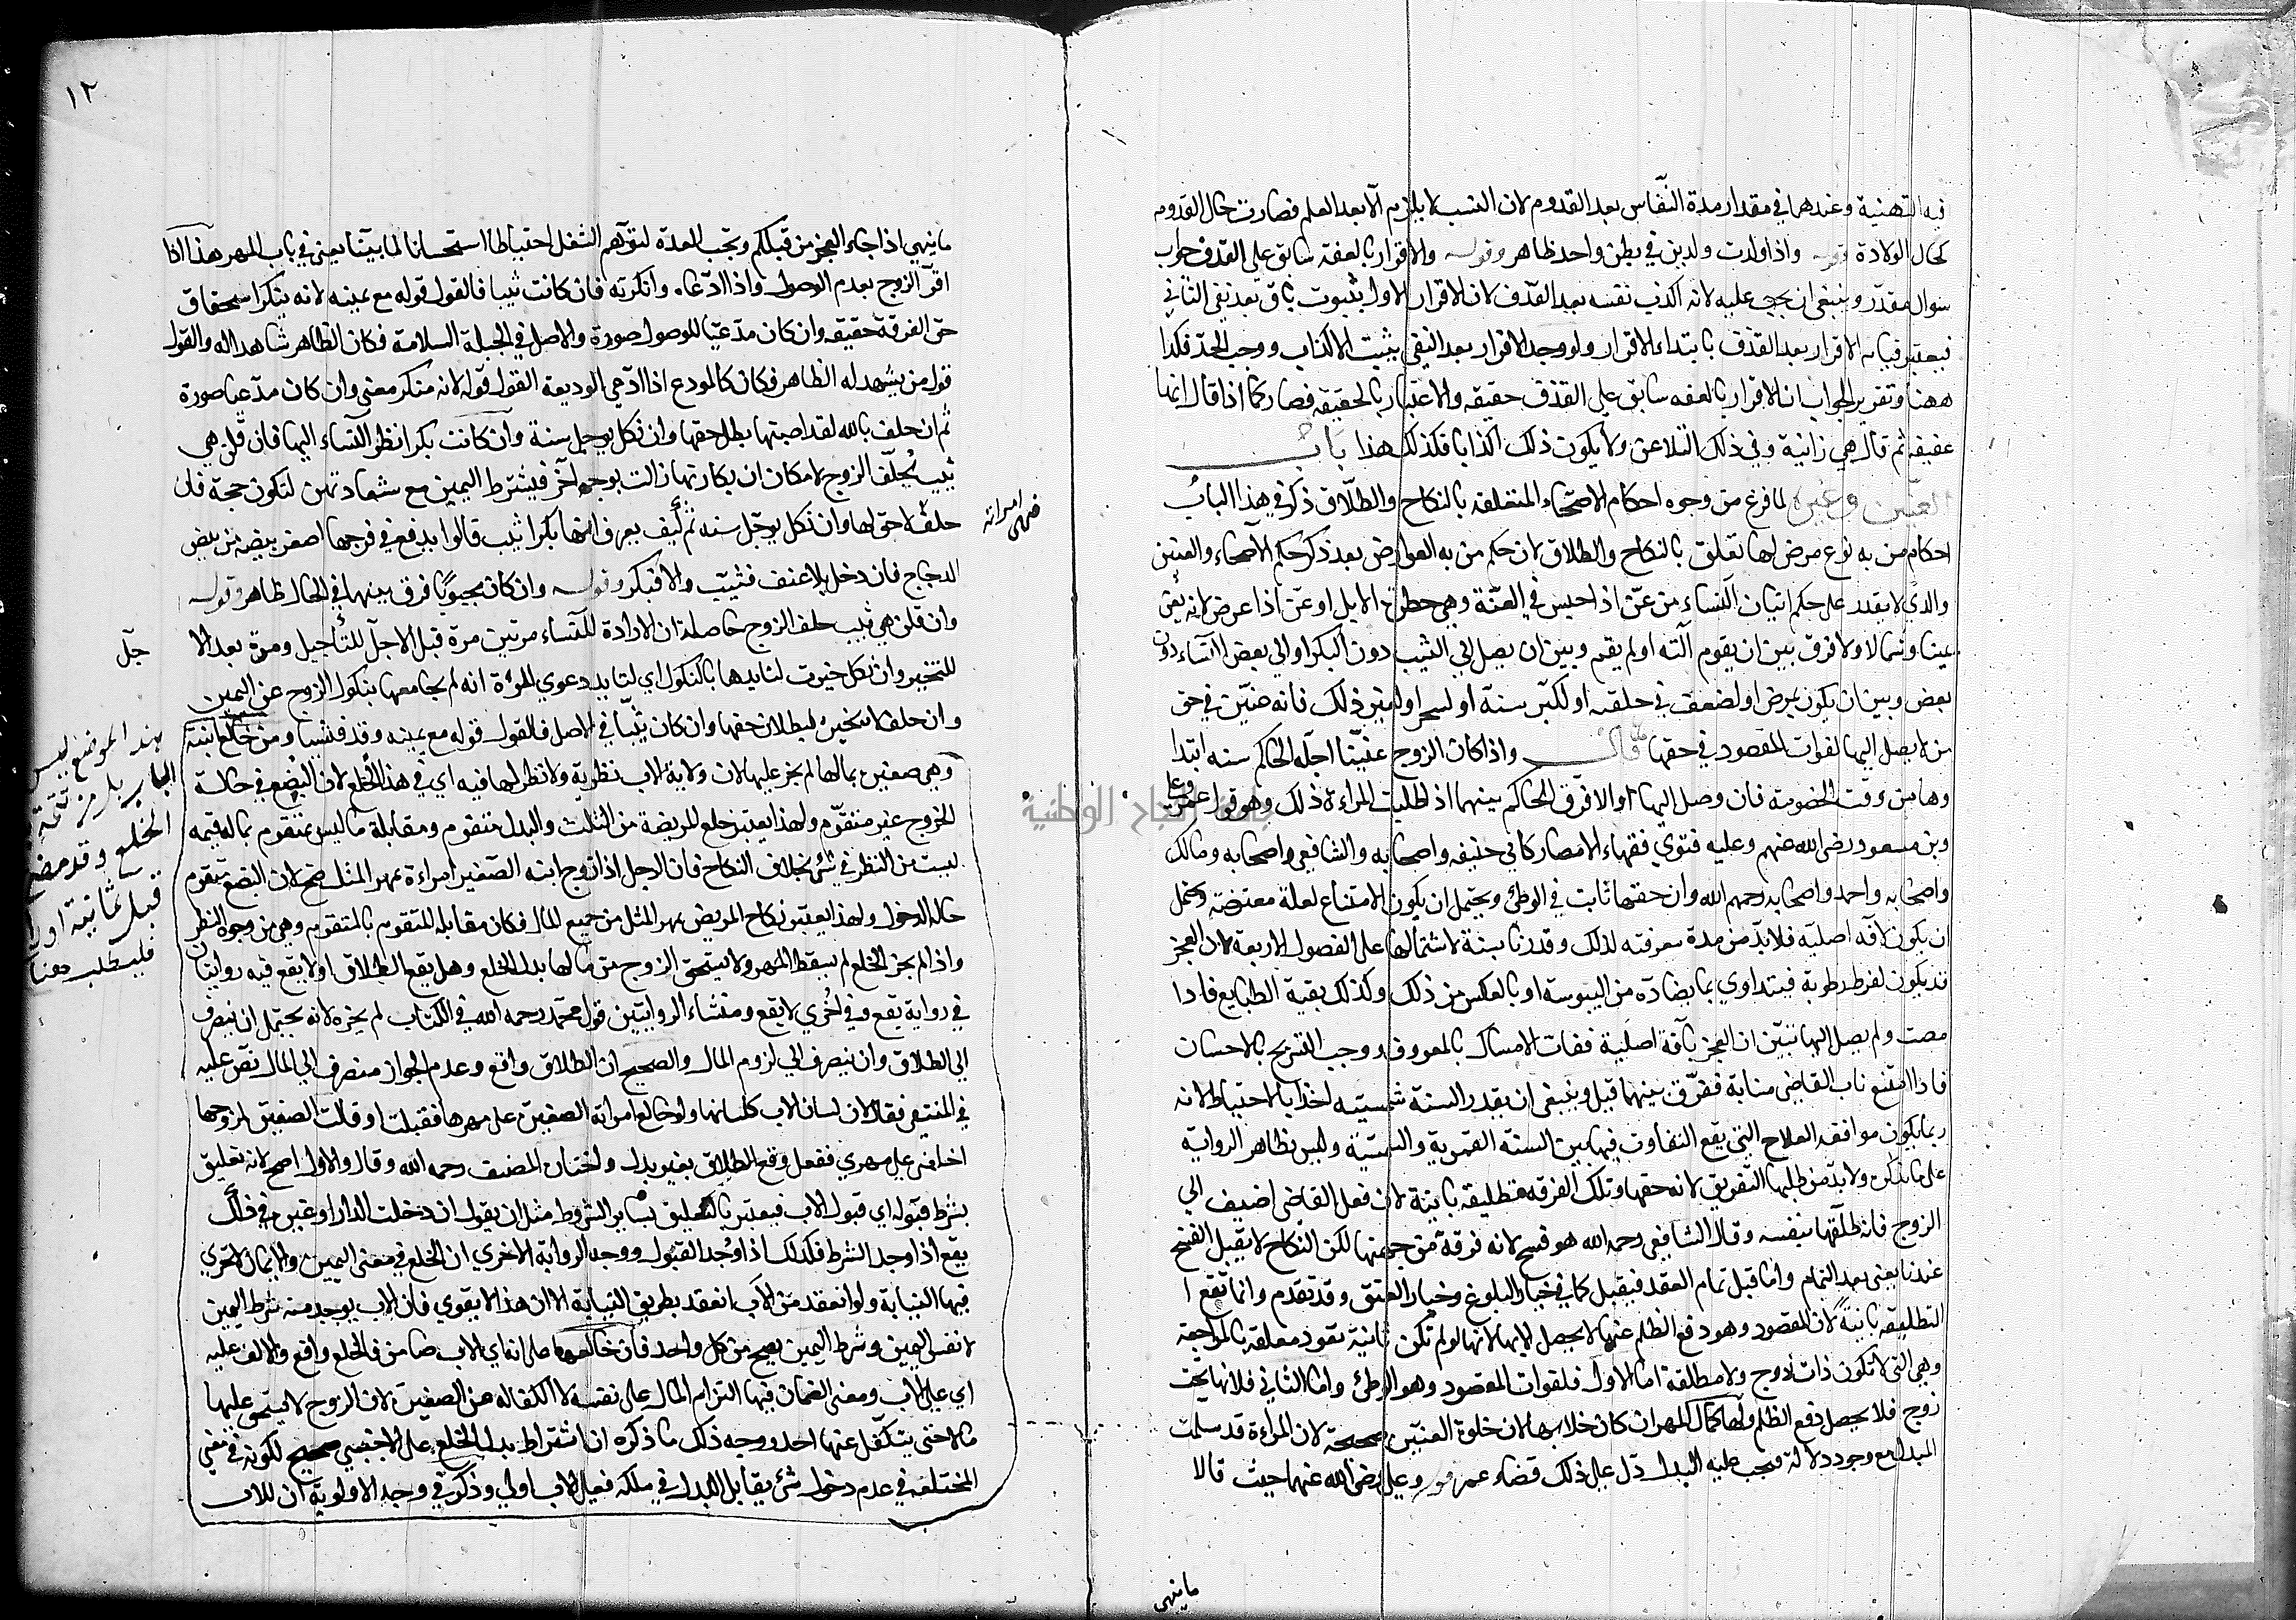 فيه التهنية وعندهما في مقدار مدة النفاس بعد القدوم لان النسب لا يلزم الا بعد العلم فصارت حال القدوم
كحال الولادة قوله واذا ولدت ولدين في بطن واحد ظاهر وقوله والاقرار بالعفة سابق على القذف جواب
سوال مقدر وينبغي ان يجب عليه لانه اكذب نفسه بعد القذف لان الاقرار الاول بثبوت باق بعد نفي الثاني
فيعتبر قيام الاقرار بعد القذف بابتداء الاقرار ولو وجد الاقرار بعد النفي يثبت الاكذاب ووجب الحد فكذا
ههنا وتقرير الجواب ان الاقرار بالعفة سابق على القذف حقيقة والاعتبار بالحقيقة فصار كما اذا قال انها
عفيفة ثم قال هي زانية وفي ذلك التلاعن ولا يكون ذلك اكذابا فكذلك هذا باب
العنين وغيره لما فرغ من وجوه احكام الاصحاء المتعلقة بالنكاح والطلاق ذكر في هذا الباب
احكام من به نوع مرض لها تعلق بالنكاح والطلاق لان حكم من به العوارض بعد ذكر حكم الاصحاء والعنين
والذي لا يقدر على حكم اتيان النساء من عن اذا حبس في العنة وهي حظيرة الابل او عن اذا عرض لانه يعن
يمينا وشمالا ولا فرق بين ان يقوم آلته او لم يقم وبين ان يصل الى الثيب دون البكر او الى بعض النساء دون
بعض وبين ان يكون لمرض او لضعف في خلقه او لكبر سنه او لسحر او لغير ذلك فانه عنين في حق
من لا يصل اليها لفوات المقصود في حقها قال واذا كان الزوج عنينا اجله الحاكم سنه ابتدا
وها من وقت الخصومة فان وصل اليها والا فرق الحاكم بينهما اذا طلبت المراءة ذلك وهو قول عمر وعلى
وبن مسعود رضي الله عنهم وعليه فتوي فقهاء الامصار كابي حنيفه واصحابه والشافعي واصحابه ومالك
واصحابه واحمد واصحابه رحمهم الله وان حقها ثابت في الوطئ ويحتمل ان يكون الامتناع لعلة معترضة ويحتمل
ان يكون لآفه اصليه فلا بد من مدة معرفته لذلك وقدرنا بسنة لاشتمالها على الفصول الاربعة لان العجز
قد يكون لفرط رطوبة فيتداوي بما يضاده من اليبوسة او بالعكس من ذلك وكذلك بقية الطبايع فاذا
مضت ولم يصل اليها تبين ان العجز بآفة اصلية ففات الامساك بالمعروف ووجب التسريح بالاحسان
فاذا امتنع ناب القاضي منابه ففرق بينهما قيل وينبغي ان يقدر السنة شمسيته اخذا بالاحتياط لانه
ربما يكون موافقه العلاج التي يقع التفاوت فيها بين السنة القمرية والشمسية وليس بظاهر الرواية
على ما نذكره ولا بد من طلبها التفريق لانه حقها وتلك الفرقه تطليقه باينة لان فعل القاضي اضيف الى
الزوج فانه طلقها بنفسه وقال الشافعي رحمه الله هو فسخ لانه فرقة من جهتها لكن النكاح لا يقبل الفسخ
عندنا يعني بعد التمام واما قبل تمام العقد فيقبل كما في خيار البلوغ وخيار العتق وقد تقدم وانما تقع ا
التطليقه باينة لان المقصود وهو دفع الظلم عنها لا يحصل الا بها لانها لو لم تكن باينة تعود معلقة بالمراجعة
وهي التي لا تكون ذات زوج ولا مطلقة اما الاول فلفوات المقصود وهو الوطئ واما الثاني فلانها تحت
زوج فلا يحصل دفع الظلم ولها كمال المهر ان كان خلا بها لان خلوة العنين صحيحة لان المراءة قد سلمت
المبدل مع وجود دلالة فيجب عليه البدل دل على ذلك قضاء عمر وعلى رضي الله عنهما حيث قالا
ما ينهى
١٢
ما ينهى اذا جاء العجز من قبلكم وتجب العدة لتوهم الشغل احتياطا استحسانا لما بينا يعني في باب المهر هذا اذا
اقر الزوج بعدم الوصول واذا ادعاه وانكرته فان كانت ثيبا فالقول قوله مع يمينه لانه ينكر استحقاق
حق الفرقة حقيقه وان كان مدعيا للوصول صورة والاصل في الجبلة السلامة فكان الظاهر شاهدا له والقول
قول من يشهد له الظاهر فكان كالمودع اذا ادعى الوديعة القول قوله لانه منكر معنى وان كان مدعيا صورة
ثم ان حلف بالله لقد اصبتها بطل حقها وان نكل يوجل سنة وان كانت بكرا نظر النساء اليها فان قلن هي
ثيب يحلف الزوج لامكان ان بكارتها زالت بوجه آخر فيشترط اليمين مع شهادتهن لتكون حجة فان
حلف لا حق لها وان نكل يوجل سنه ثم كيف يعرف انها بكر او ثيب قالوا يدفع في فرجها اصغر بيضه من بيض
الدجاج فان دخل بلا عنف فثيب والا فبكر وقوله وان كان مجبوبا فرق بينهما في الحال ظاهر وقوله
وان قلن هي ثيب حلف الزوج حاصله ان الارادة للنساء مرتين مرة قبل الاجل للتأجيل ومرة بعد الا
جل
للتخيير وان نكل خيرت لتايدها بالنكول اي لتايد دعوي المراة انه لم يجامعها بنكول الزوج عن اليمين
وان حلف لا تخير لبطلان حقها وان كان ثيبا في الاصل فالقول قوله مع يمينه وقد ومن خالع ابنته
وهي صغيرة بمالها لم يجز عليها لان ولاية الاب نظرية ولا نظر لها فيه اي في هذا الخلع لان البضع في حالة
الخروج غير متقوم ولهذا يعتبر خلع المريضة من الثلث والبدل متقوم ومقابلة ما ليس بمتقوم بماله قيمه
ليست من النظر في شئ بخلاف النكاح فان الرجل اذا زوج ابنه الصغير امراءة بمهر المثل صح لان البضع متقوم
حالة الدخول ولهذا يعتبر نكاح المريض بمهر المثل من جميع المال فكان مقابلة المتقوم بالمتقوم وهي من وجوه النظر
واذا لم يجز الخلع لم يسقط المهر ولا يستحق الزوج من مالها بدل الخلع وهل يقع الطلاق او لا يقع فيه روايتان
في رواية يقع وفي اخري لا يقع ومنشاء الروايتين قول محمد رحمه الله في الكتاب لم يجزه لانه يحتمل ان ينصرف
الي الطلاق وان ينصرف الي لزوم المال والصحيح ان الطلاق واقع وعدم الجواز منصرف الي المال نص عليه
في المنتقى فقال لان لسان الاب كلسانها ولو خالع امراته الصغيرة على مهرها فقبلت او قالت الصغيرة لزوجها
اخلعني على مهري ففعل وقع الطلاق بغير بدل واختار المصنف رحمه الله وقال والاول اصح لانه تعليق
بشرط قبوله اي قبول الاب فيعتبر بالتعليق بساير الشروط مثل ان يقول ان دخلت الدار او غيره في ذلك
يقع اذا وجد الشرط فكذلك اذا وجد القبول ووجه الرواية الاخري ان الخلع في معنى اليمين والايمان لا تجري
فيها النيابة ولو انعقد من الاب انعقد بطريق النيابة الا ان هذا لا يقوي فان الاب يوجد منه شرط اليمين
لا نفس اليمين وشرط اليمين يصح من كل واحد فان خالعها على انه اي الاب ضامن فالخلع واقع والالف عليه
اي على الاب ومعنى الضمان فيها التزام المال على نفسه لا الكفاله عن الصغيرة لان الزوج لا يستحق عليها
مالا حتى يتكفل عنها احد ووجه ذلك ما ذكره ان اشتراط بدل الخلع على الاجنبي صحيح لكونه في معنى
المختلفه في عدم دخول شئ يقابل البدل في ملكه فعلى الاب اولي وذكر في وجه الاولوية ان للاب
امراته
هذا الموضع ليس
الباب بل من تتمة
الخلع وقد مضى
قبل ثمانية اوراق
فليطلب هناك
جامعة النجاح الوطنية